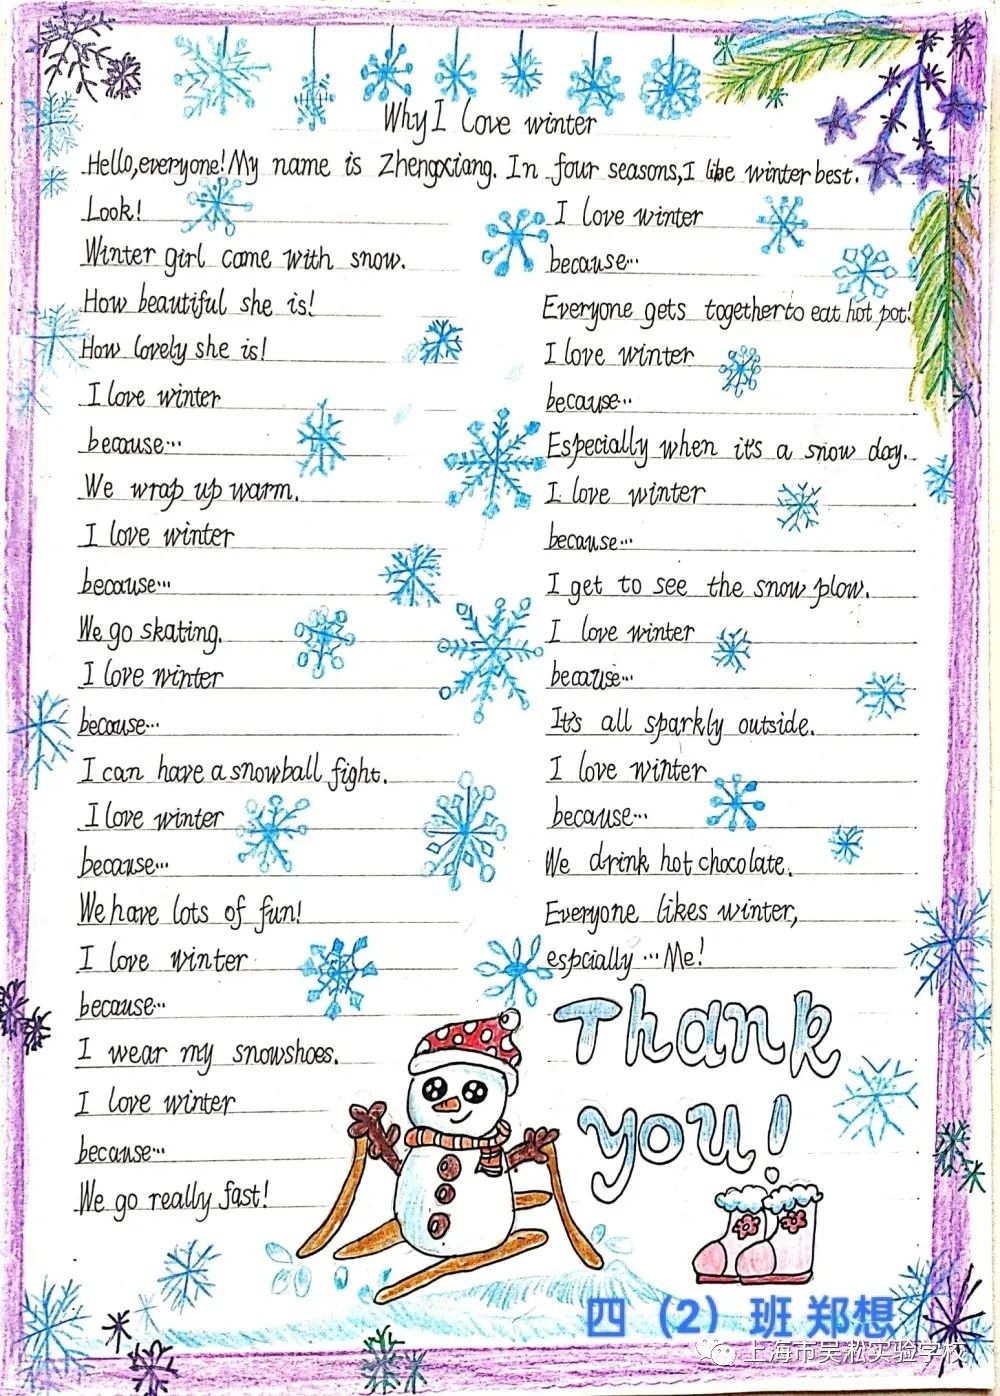 Why I love winter
Hello,everyone! My name is Zhengxiang. In four seasons,I like winter best.
Look!
Winter girl came with snow.
How beautiful she is!
How lovely she is!
I love winter
because…
We wrap up warm.
I love winter
because…
We go skating.
I love winter
because…
I can have a snowball fight.
I love winter
because…
We have lots of fun!
I love winter
because…
I wear my snowshoes.
I love winter
because…
We go really fast!
I love winter
because…
Everyone gets together to eat hot pot!
I love winter
because…
Especially when it's a snow day.
I love winter
because…
I get to see the snow plow.
I love winter
because…
It's all sparkly outside.
I love winter
because…
We drink hot chocolate.
Everyone likes winter,
espcially … Me!
Thank
you!
四（2）班 郑想
上海市吴淞实验学校